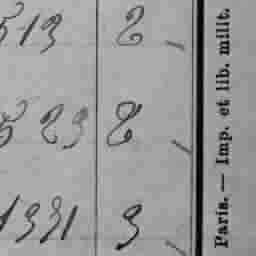 513 2
523 2
1331 3
Paris. — Imp. et lib. milit.